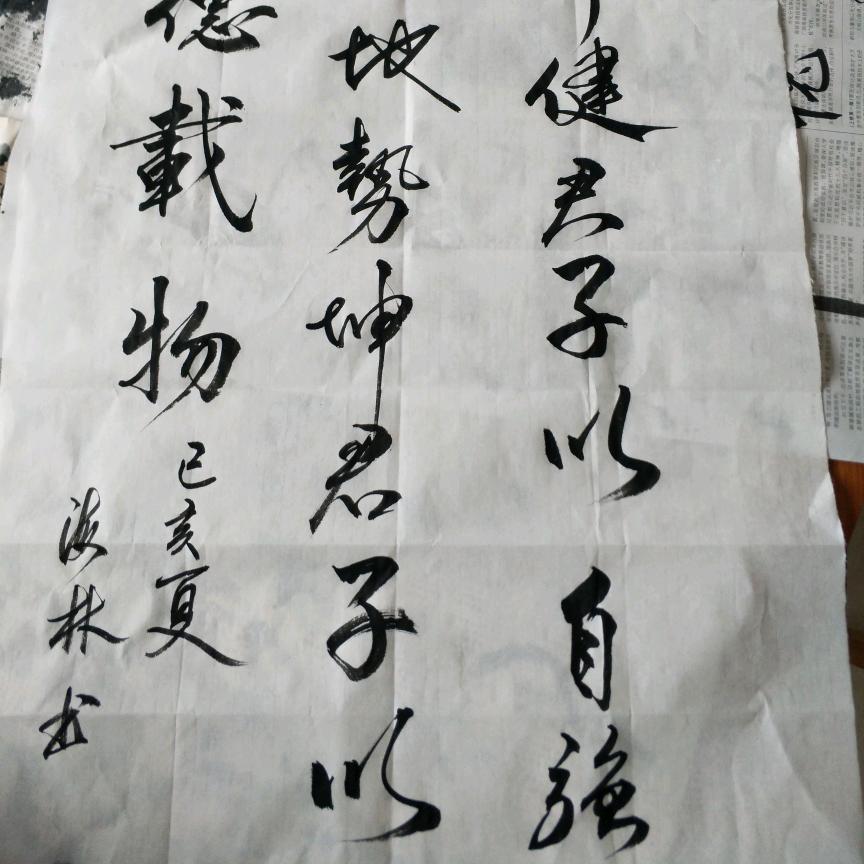 健君子以自強
地勢坤君子以
德載物
己亥夏
海林书